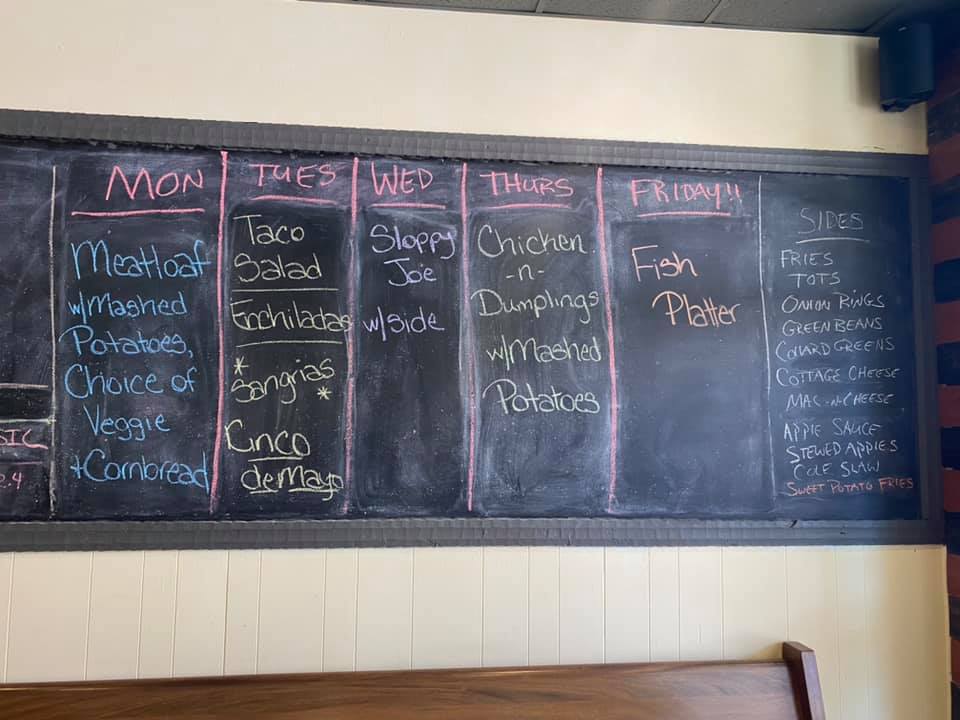 SIC
MON
Meatloaf
w/Mashed
Potatoes,
Choice of
Veggie
+Cornbread
TUES
Taco
Salad
Enchiladas
*
Sangrias
*
Cinco
de Mayo
WED
Sloppy
Joe
w/side
THURS
Chicken
-n-
Dumplings
w/Mashed
Potatoes
FRIDAY!!
Fish
Platter
SIDES
FRIES
TOTS
ONION RINGS
GREEN BEANS
COLLARD GREENS
COTTAGE CHEESE
MAC-N-CHEESE
APPLE SAUCE
STEWED APPLES
COLE SLAW
SWEET POTATO FRIES